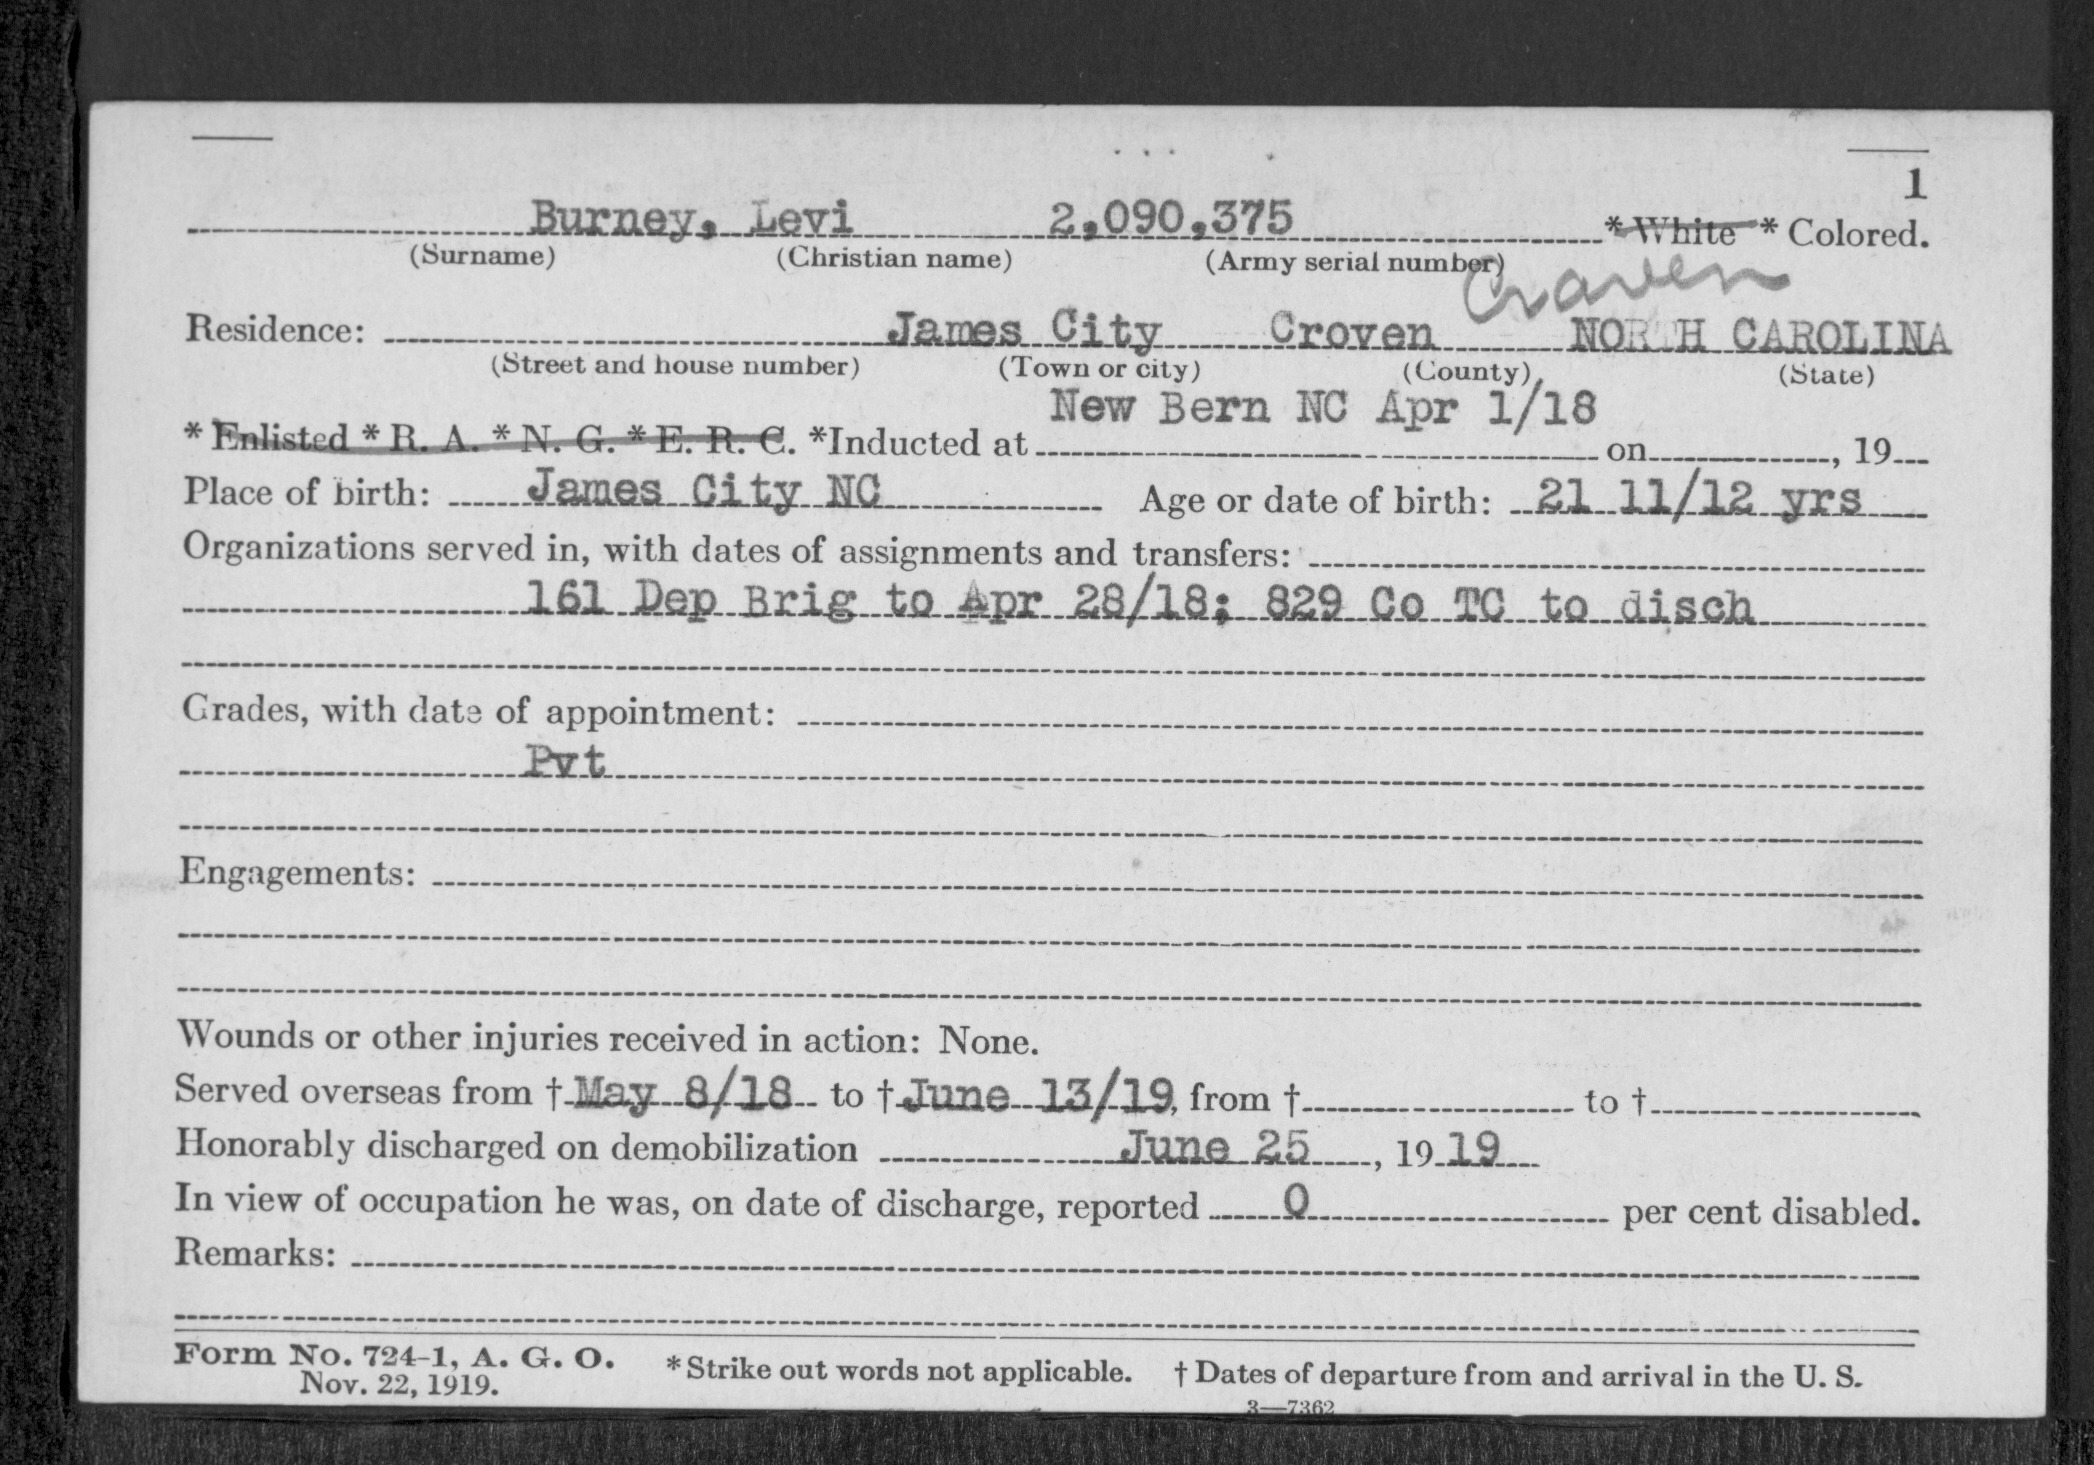 1
Burney, Levi 2,090,375 * White * Colored.
(Surname) (Christian name) (Army serial number)
Craven
Residence: James City Croven NORTH CAROLINA
(Street and house number) (Town or city) (County) (State)
New Bern NC Apr 1/18
* Enlisted * R. A. * N. G. * E. R. C. *Inducted at on , 19
Place of birth: James City NC Age or date of birth: 21 11/12 yrs
Organizations served in, with dates of assignments and transfers:
161 Dep Brig to Apr 28/18; 829 Co TC to disch
Grades, with date of appointment:
Pvt
Engagements:
Wounds or other injuries received in action: None.
Served overseas from † May 8/18 to † June 13/19, from † to †
Honorably discharged on demobilization June 25, 19 19
In view of occupation he was, on date of discharge, reported 0 per cent disabled.
Remarks:
Form No. 724-1, A. G. O. * Strike out words not applicable. † Dates of departure from and arrival in the U. S.
Nov. 22, 1919.
3—7362